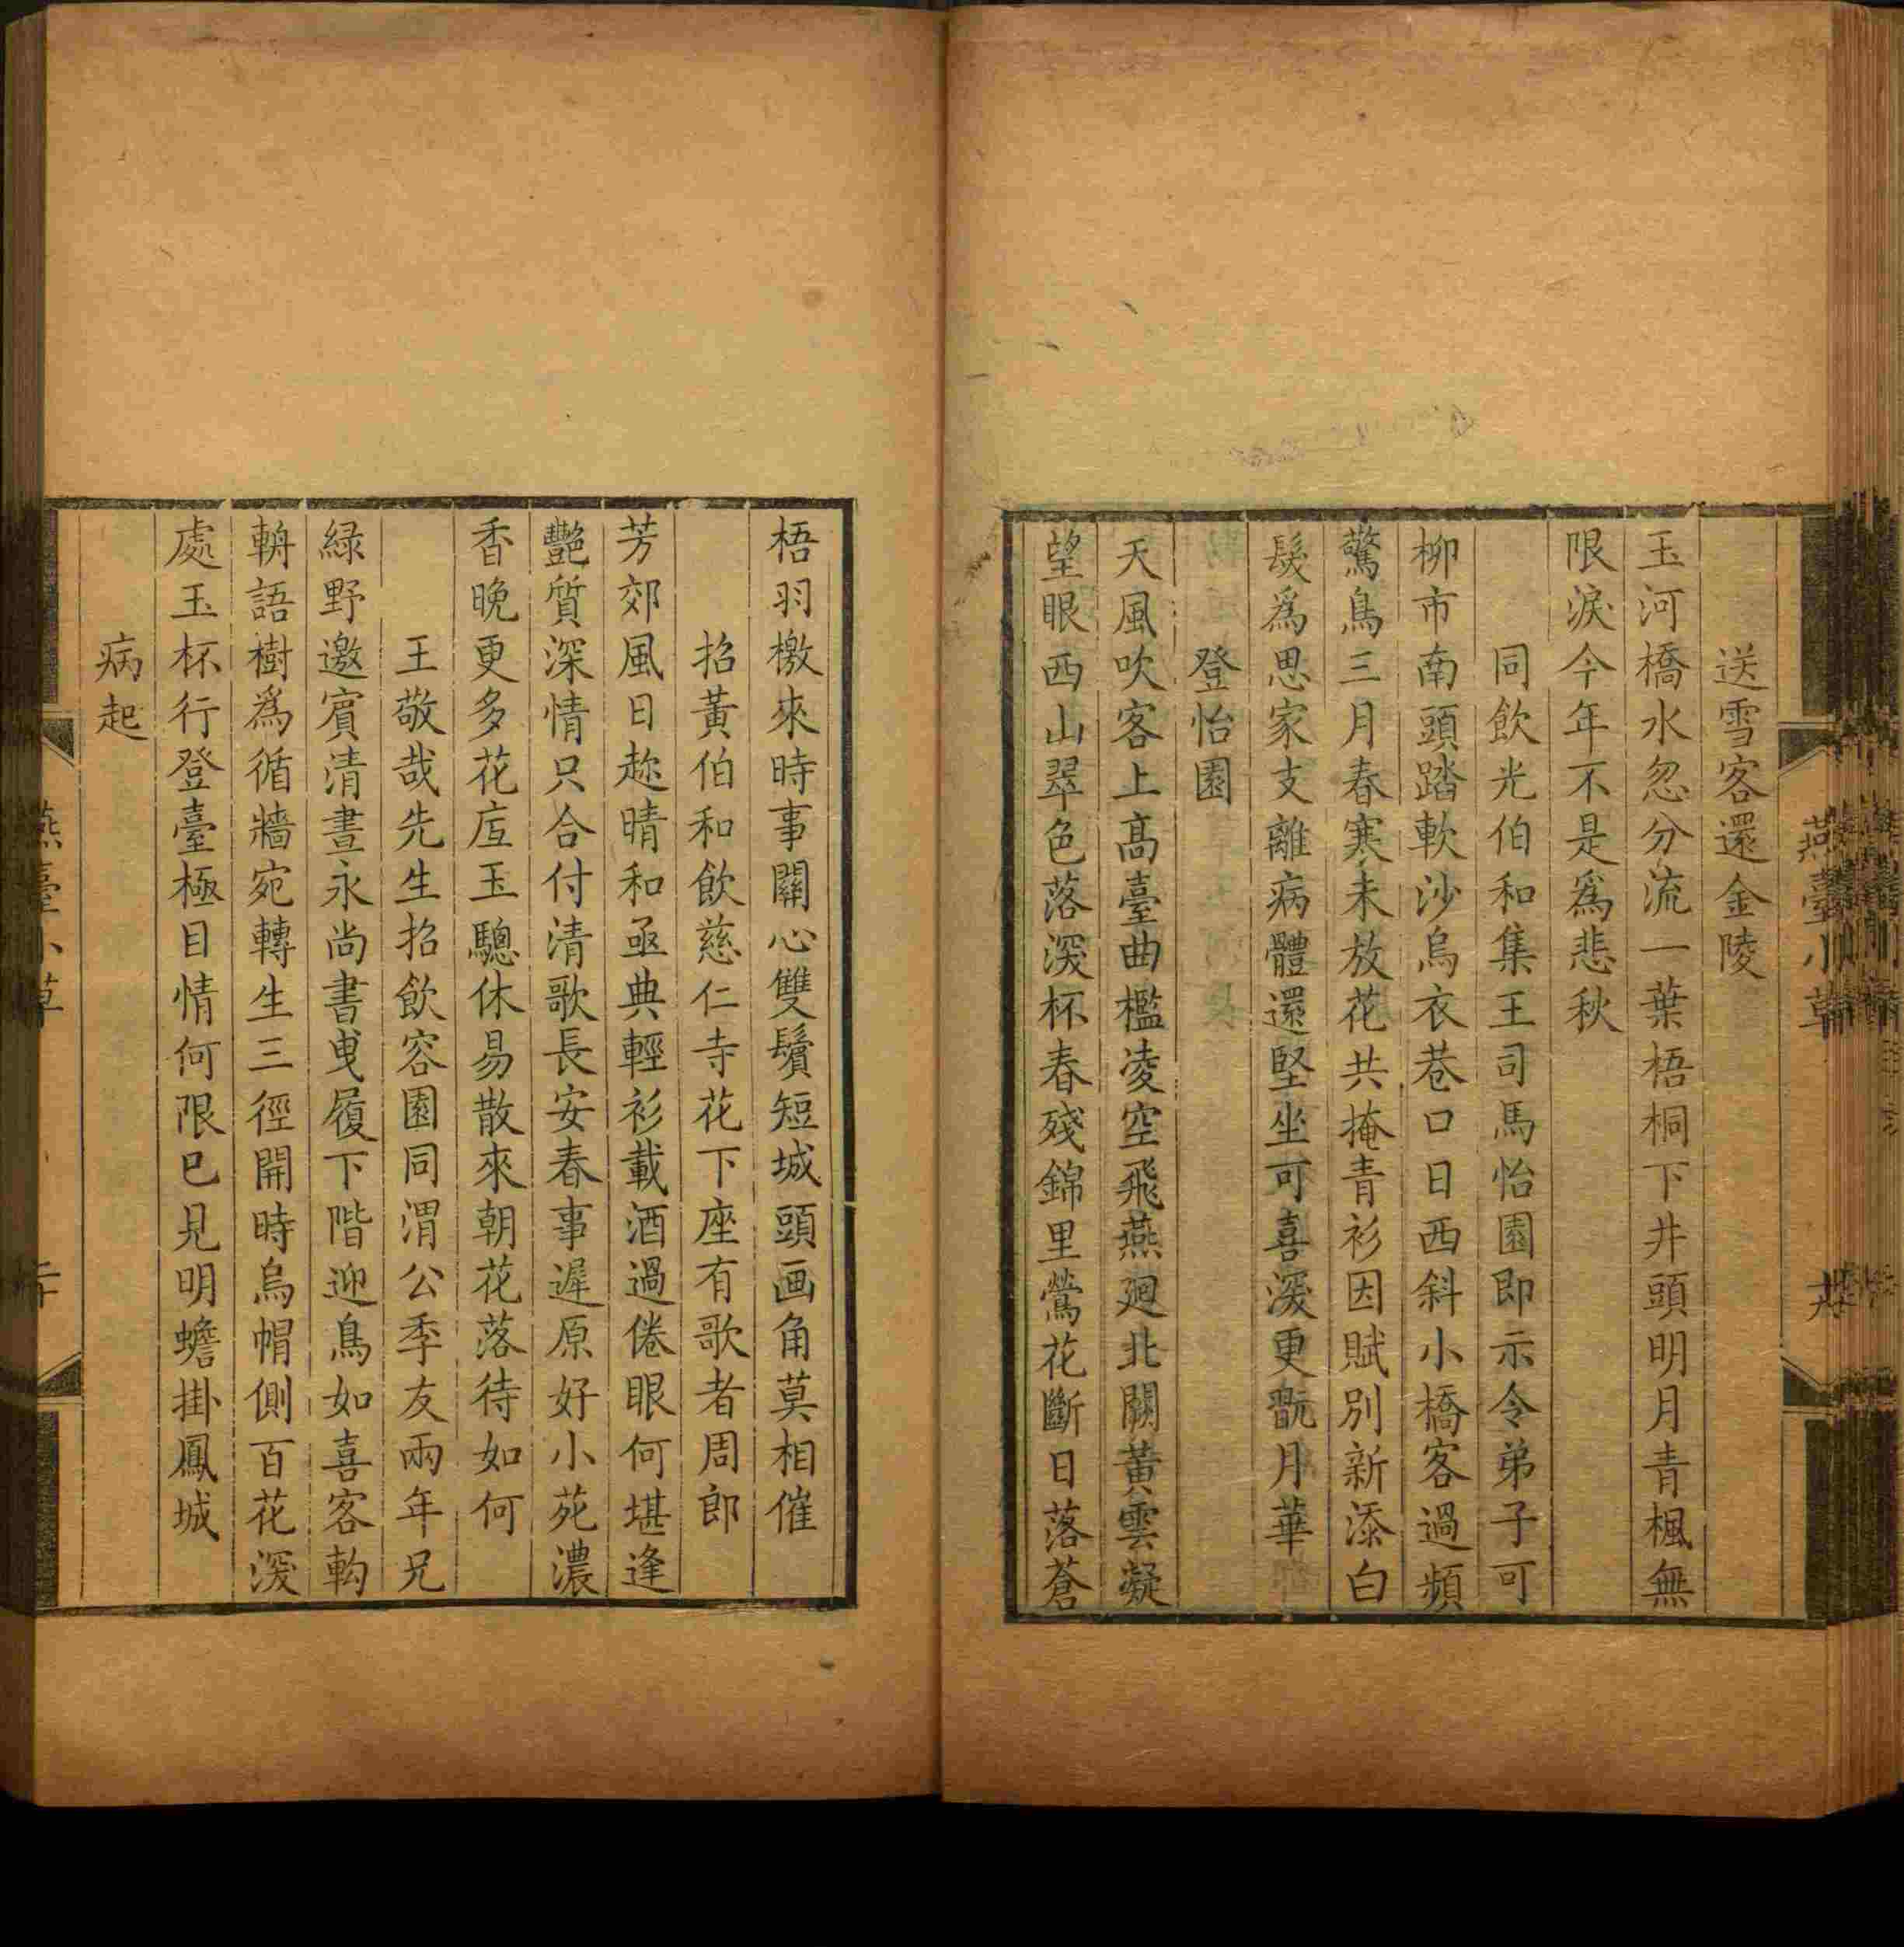 燕臺小草
送雪客還金陵
玉河橋水忽分流一葉梧桐下井頭明月青楓無
限淚今年不是爲悲秋
同飲光伯和集王司馬怡園即示令弟子可
柳市南頭踏軟沙烏衣巷口日西斜小橋客過頻
驚鳥三月春寒未放花共掩青衫因賦別新添白
髮爲思家支離病體還堅坐可喜深更翫月華
登怡園
天風吹客上高臺曲檻凌空飛燕廻北闕黃雲凝
望眼西山翠色落深杯春殘錦里鶯花斷日落蒼
梧羽檄來時事關心雙鬢短城頭画角莫相催
招黃伯和飲慈仁寺花下座有歌者周郎
芳郊風日趂晴和亟典輕衫載酒過倦眼何堪逢
艷質深情只合付清歌長安春事遲原好小苑濃
香晚更多花底玉驄休易散來朝花落待如何
王敬哉先生招飲容園同渭公季友兩年兄
緑野邀賓清晝永尚書曳履下階迎鳥如喜客輈
輈語樹爲循牆宛轉生三徑開時烏帽側百花深
處玉杯行登臺極目情何限巳見明蟾掛鳳城
病起
燕臺小草